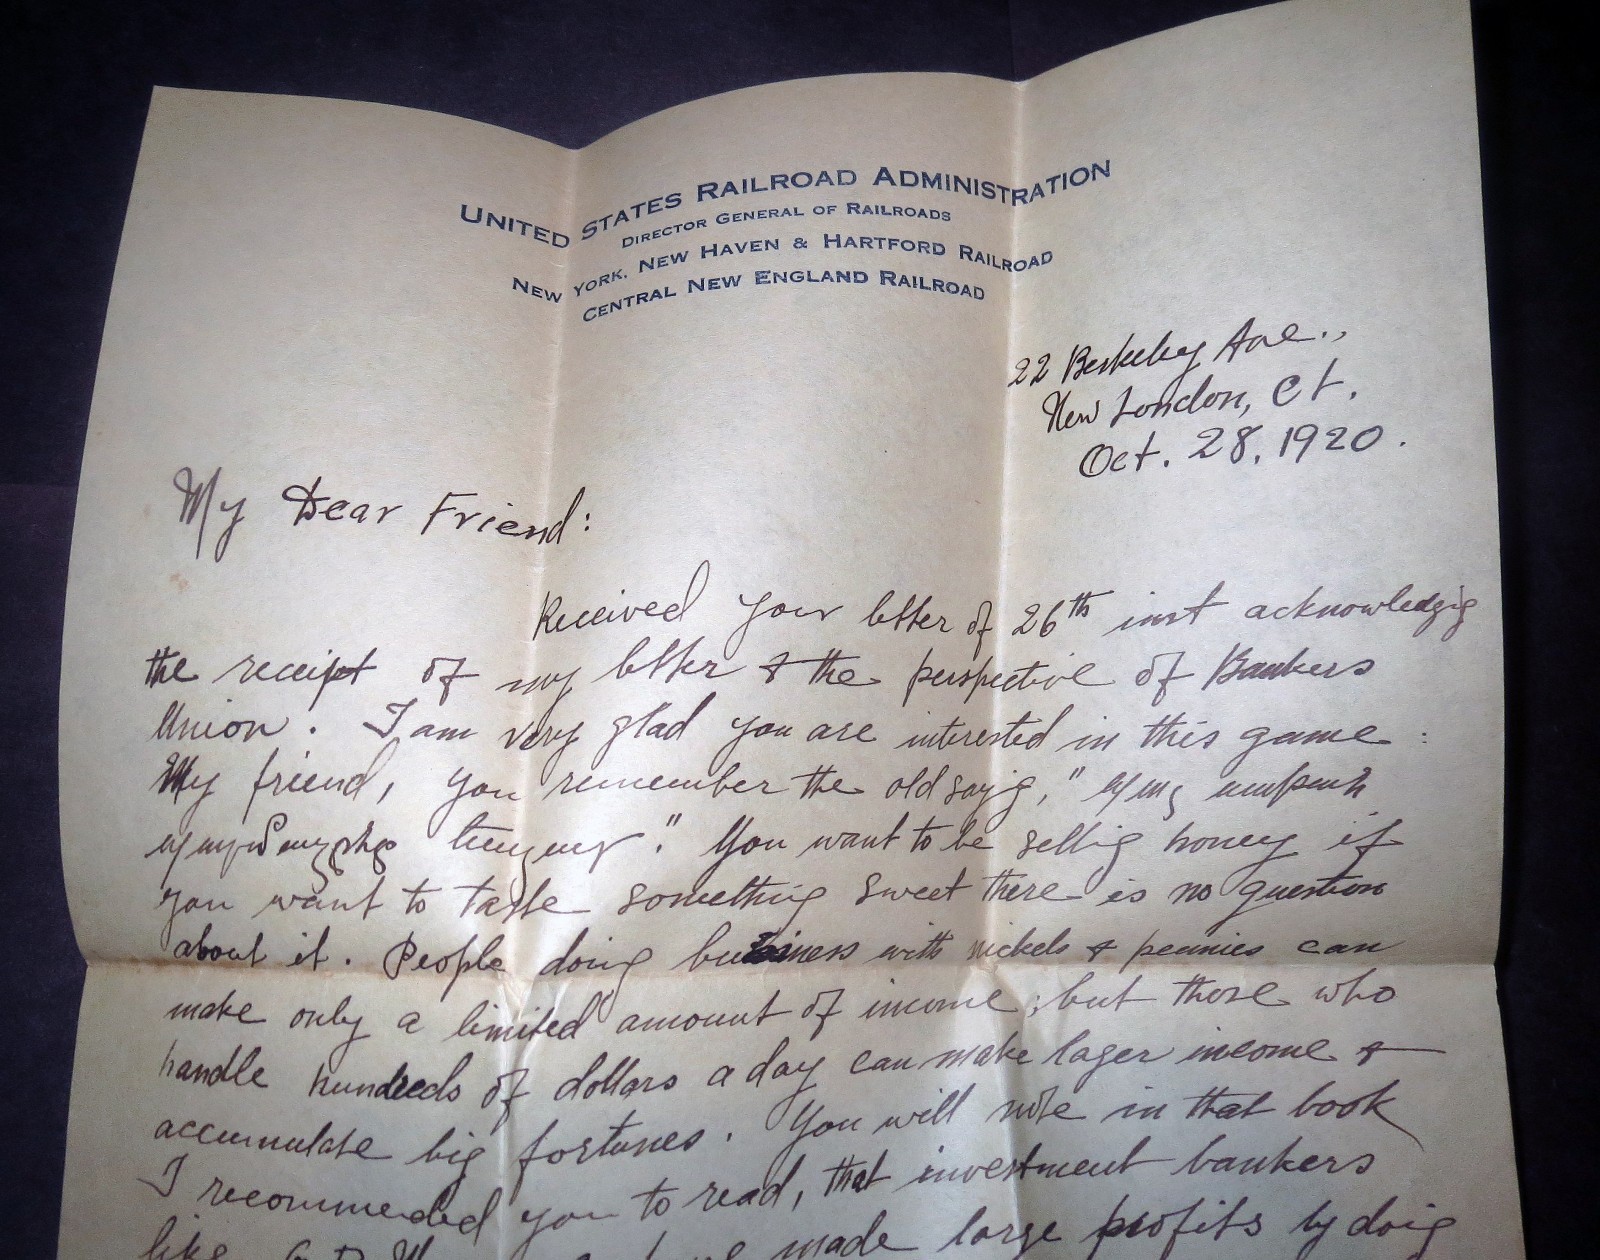 UNITED STATES RAILROAD ADMINISTRATION
DIRECTOR GENERAL OF RAILROADS
NEW YORK, NEW HAVEN & HARTFORD RAILROAD
CENTRAL NEW ENGLAND RAILROAD
22 Berkeley Ave.,
New London, Ct.
Oct. 28, 1920.
My Dear Friend:
Received your letter of 26th inst acknowledgig
the receipt of my letter & the perspective of Bankers
Union. I am very glad you are interested in this game.
My friend, you remember the old sayig, "
". You want to be sellig honey if
you want to taste something sweet there is no question
about it. People doing business with nickels & pennies can
make only a limited amount of income; but those who
handle hundreds of dollars a day can make lager income &
accumulate big fortunes. You will note in that book
I recommended you to read, that investment bankers
like made large profits by doig